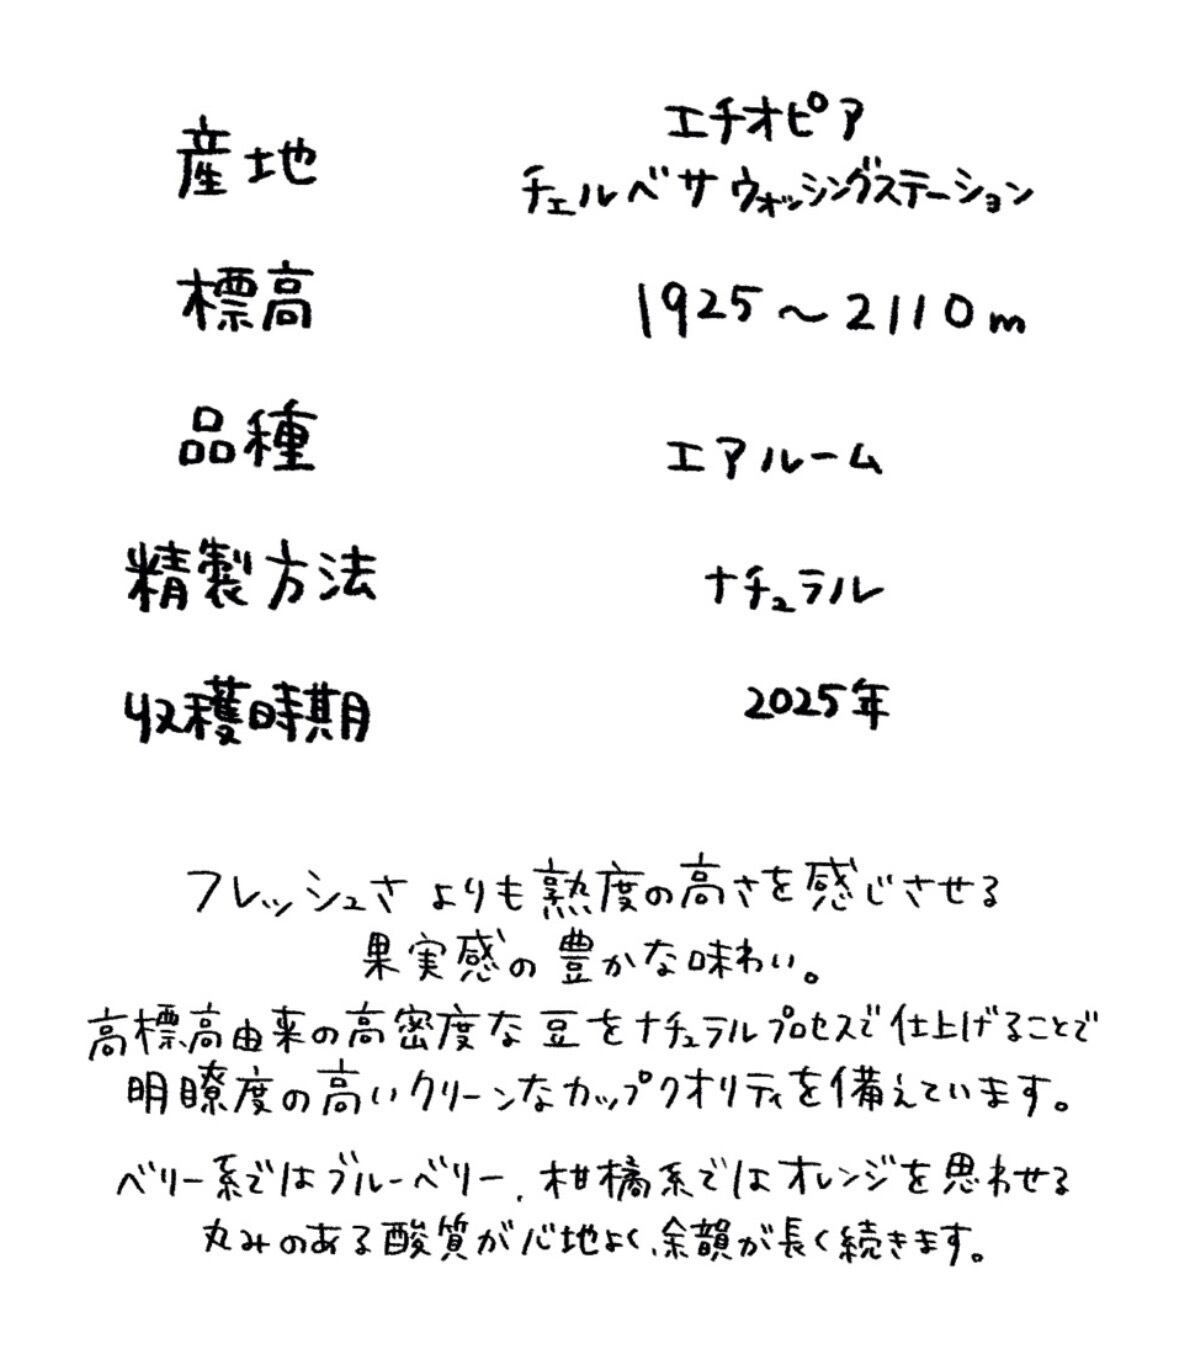 産地 エチオピア
チェルベサ ウォッシングステーション
標高 1925〜2110m
品種 エアルーム
精製方法 ナチュラル
収穫時期 2025年
フレッシュさよりも熟度の高さを感じさせる
果実感の豊かな味わい。
高標高由来の高密度な豆をナチュラルプロセスで仕上げることで
明瞭度の高いクリーンなカップクオリティを備えています。
ベリー系ではブルーベリー、柑橘系ではオレンジを思わせる
丸みのある酸質が心地よく、余韻が長く続きます。